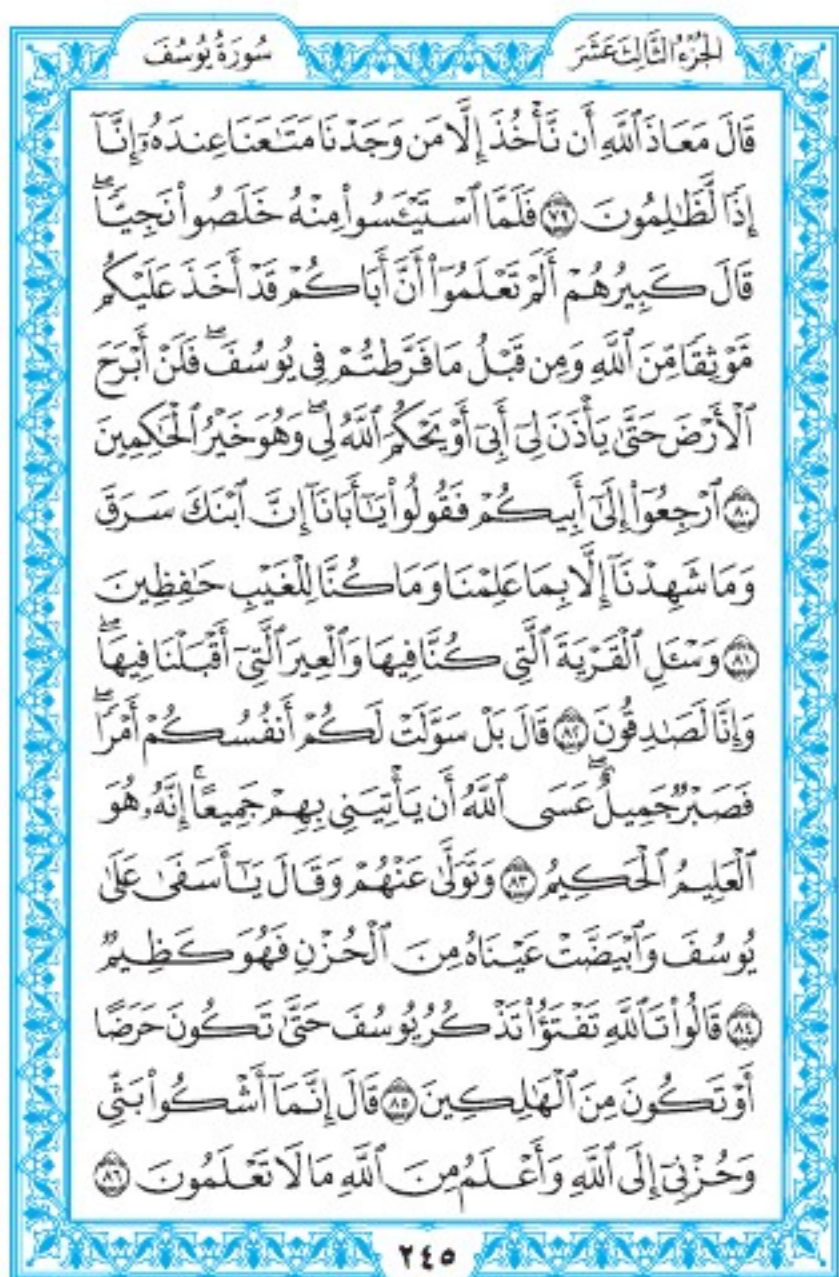 الجُزْءُ الثَّالِثَ عَشَرَ
سُورَةُ يُوسُفَ
قَالَ مَعَاذَ ٱللَّهِ أَن نَّأۡخُذَ إِلَّا مَن وَجَدۡنَا مَتَٰعَنَا عِندَهُۥٓ إِنَّآ
إِذٗا لَّظَٰلِمُونَ ٧٩ فَلَمَّا ٱسۡتَيۡـَٔسُواْ مِنۡهُ خَلَصُواْ نَجِيّٗاۖ
قَالَ كَبِيرُهُمۡ أَلَمۡ تَعۡلَمُوٓاْ أَنَّ أَبَاكُمۡ قَدۡ أَخَذَ عَلَيۡكُم
مَّوۡثِقٗا مِّنَ ٱللَّهِ وَمِن قَبۡلُ مَا فَرَّطتُمۡ فِي يُوسُفَۖ فَلَنۡ أَبۡرَحَ
ٱلۡأَرۡضَ حَتَّىٰ يَأۡذَنَ لِيٓ أَبِيٓ أَوۡ يَحۡكُمَ ٱللَّهُ لِيۖ وَهُوَ خَيۡرُ ٱلۡحَٰكِمِينَ
٨٠ ٱرۡجِعُوٓاْ إِلَىٰٓ أَبِيكُمۡ فَقُولُواْ يَٰٓأَبَانَآ إِنَّ ٱبۡنَكَ سَرَقَ
وَمَا شَهِدۡنَآ إِلَّا بِمَا عَلِمۡنَا وَمَا كُنَّا لِلۡغَيۡبِ حَٰفِظِينَ
٨١ وَسۡـَٔلِ ٱلۡقَرۡيَةَ ٱلَّتِي كُنَّا فِيهَا وَٱلۡعِيرَ ٱلَّتِيٓ أَقۡبَلۡنَا فِيهَاۖ
وَإِنَّا لَصَٰدِقُونَ ٨٢ قَالَ بَلۡ سَوَّلَتۡ لَكُمۡ أَنفُسُكُمۡ أَمۡرٗاۖ
فَصَبۡرٞ جَمِيلٌۖ عَسَى ٱللَّهُ أَن يَأۡتِيَنِي بِهِمۡ جَمِيعًاۚ إِنَّهُۥ هُوَ
ٱلۡعَلِيمُ ٱلۡحَكِيمُ ٨٣ وَتَوَلَّىٰ عَنۡهُمۡ وَقَالَ يَٰٓأَسَفَىٰ عَلَىٰ
يُوسُفَ وَٱبۡيَضَّتۡ عَيۡنَاهُ مِنَ ٱلۡحُزۡنِ فَهُوَ كَظِيمٞ
٨٤ قَالُواْ تَٱللَّهِ تَفۡتَؤُاْ تَذۡكُرُ يُوسُفَ حَتَّىٰ تَكُونَ حَرَضًا
أَوۡ تَكُونَ مِنَ ٱلۡهَٰلِكِينَ ٨٥ قَالَ إِنَّمَآ أَشۡكُواْ بَثِّي
وَحُزۡنِيٓ إِلَى ٱللَّهِ وَأَعۡلَمُ مِنَ ٱللَّهِ مَا لَا تَعۡلَمُونَ ٨٦
٢٤٥